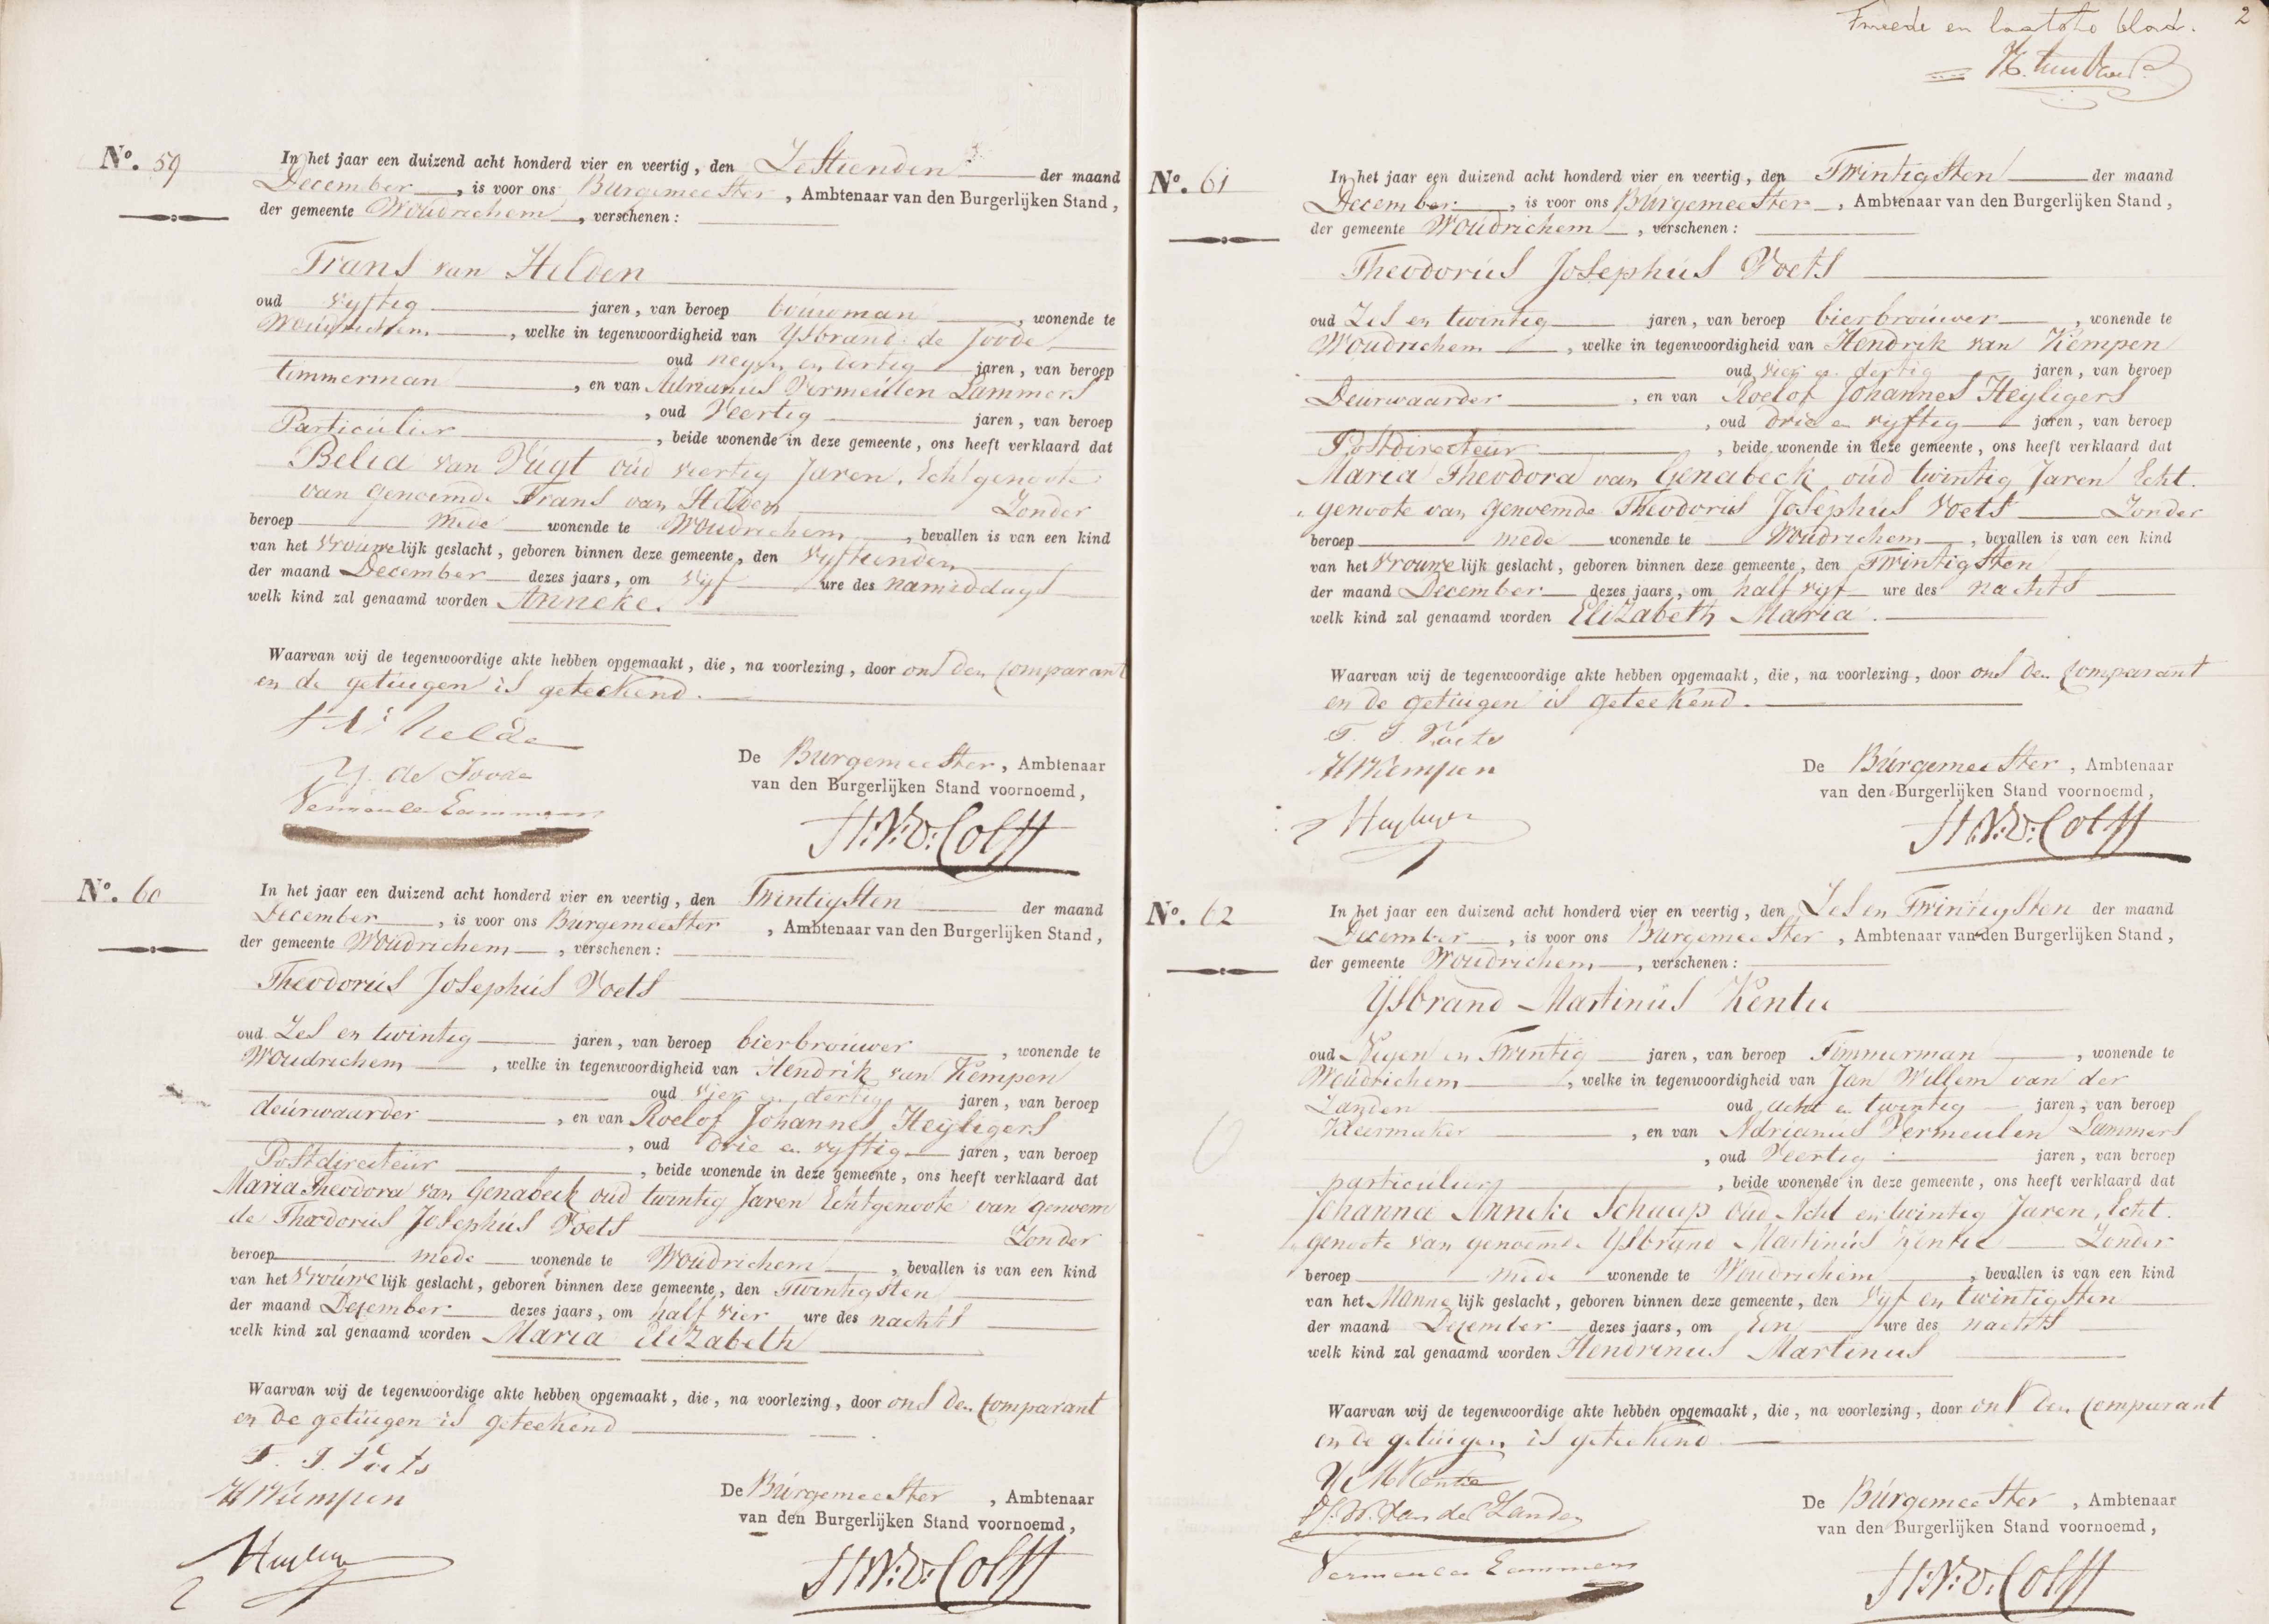 No. 59
In het jaar een duizend acht honderd vier en veertig, den Zestienden der maand
December, is voor ons Burgemeester, Ambtenaar van den Burgerlijken Stand,
der gemeente Woudrichem, verschenen:
Frans van Helden
oud vyftig jaren, van beroep bouwman, wonende te
Woudrichem, welke in tegenwoordigheid van Ysbrand de Joode
oud negen en dertig jaren, van beroep
timmerman, en van Adrianus Vermeulen Lammers
, oud Veertig jaren, van beroep
Particulier, beide wonende in deze gemeente, ons heeft verklaard dat
Belia van Vugt oud veertig Jaren, Echtgenoote
van genoemde Frans van Helden Zonder
beroep mede wonende te Woudrichem, bevallen is van een kind
van het vrouwelijk geslacht, geboren binnen deze gemeente, den vyftienden
der maand December dezes jaars, om vyf ure des namiddags
welk kind zal genaamd worden Anneke.
Waarvan wij de tegenwoordige akte hebben opgemaakt, die, na voorlezing, door ons den Comparant
en de getuigen is geteekend.
Y. de Joode
Vermeulen Lammers
De Burgemeester, Ambtenaar
van den Burgerlijken Stand voornoemd,
H:N:v:d: Colff
No. 60
In het jaar een duizend acht honderd vier en veertig, den Twintigsten der maand
December, is voor ons Burgemeester, Ambtenaar van den Burgerlijken Stand,
der gemeente Woudrichem, verschenen:
Theodorus Josephus Voets
oud Zes en twintig jaren, van beroep bierbrouwer, wonende te
Woudrichem, welke in tegenwoordigheid van Hendrik van Kempen
oud vier en dertig jaren, van beroep
deurwaarder, en van Roelof Johannes Heyligers
, oud drie en vyftig jaren, van beroep
Postdirecteur, beide wonende in deze gemeente, ons heeft verklaard dat
Maria Theodora van Genabeek oud twintig Jaren Echtgenoote van genoem
de Theodorus Josephus Voets Zonder
beroep mede wonende te Woudrichem, bevallen is van een kind
van het vrouwelijk geslacht, geboren binnen deze gemeente, den Twintigsten
der maand December dezes jaars, om half vier ure des nachts
welk kind zal genaamd worden Maria Elizabeth
Waarvan wij de tegenwoordige akte hebben opgemaakt, die, na voorlezing, door ons den Comparant
en de getuigen is geteekend
T. J. Voets
HvKempen
De Burgemeester, Ambtenaar
van den Burgerlijken Stand voornoemd,
H:N:v:d: Colff
2
Tweede en laatste blad.
No. 61
In het jaar een duizend acht honderd vier en veertig, den Twintigsten der maand
December, is voor ons Burgemeester, Ambtenaar van den Burgerlijken Stand,
der gemeente Woudrichem, verschenen:
Theodorus Josephus Voets
oud Zes en twintig jaren, van beroep bierbrouwer, wonende te
Woudrichem, welke in tegenwoordigheid van Hendrik van Kempen
oud vier en dertig jaren, van beroep
Deurwaarder, en van Roelof Johannes Heyligers
, oud drie en vyftig jaren, van beroep
Postdirecteur, beide wonende in deze gemeente, ons heeft verklaard dat
Maria Theodora van Genabeck oud twintig Jaren Echt.
genoote van genoemde Theodorus Josephus Voets Zonder
beroep mede wonende te Woudrichem, bevallen is van een kind
van het vrouwelijk geslacht, geboren binnen deze gemeente, den Twintigsten
der maand December dezes jaars, om half vyf ure des nachts
welk kind zal genaamd worden Elizabeth Maria.
Waarvan wij de tegenwoordige akte hebben opgemaakt, die, na voorlezing, door ons den Comparant
en de getuigen is geteekend.
T. J. Voets
HvKempen
De Burgemeester, Ambtenaar
van den Burgerlijken Stand voornoemd,
H:N:v:d: Colff
No. 62
In het jaar een duizend acht honderd vier en veertig, den Zes en Twintigsten der maand
December, is voor ons Burgemeester, Ambtenaar van den Burgerlijken Stand,
der gemeente Woudrichem, verschenen:
Ysbrand Martinus Kentie
oud Negen en Twintig jaren, van beroep Timmerman, wonende te
Woudrichem, welke in tegenwoordigheid van Jan Willem van der
Zanden oud acht en twintig jaren, van beroep
Kleermaker, en van Adrianus Vermeulen Lammers
, oud Veertig jaren, van beroep
particulier, beide wonende in deze gemeente, ons heeft verklaard dat
Johanna Anneke Schaap oud Acht en twintig Jaren, Echt.
genoote van genoemde Ysbrand Martinus Kentie Zonder
beroep mede wonende te Woudrichem, bevallen is van een kind
van het Mannelijk geslacht, geboren binnen deze gemeente, den vyf en twintigsten
der maand December dezes jaars, om Een ure des nachts
welk kind zal genaamd worden Hendrinus Martinus
Waarvan wij de tegenwoordige akte hebben opgemaakt, die, na voorlezing, door ons den Comparant
en de getuigen is geteekend.
Y: M Kentie
J. W. van der Zanden
Vermeulen Lammers
De Burgemeester, Ambtenaar
van den Burgerlijken Stand voornoemd,
H:N:v:d: Colff